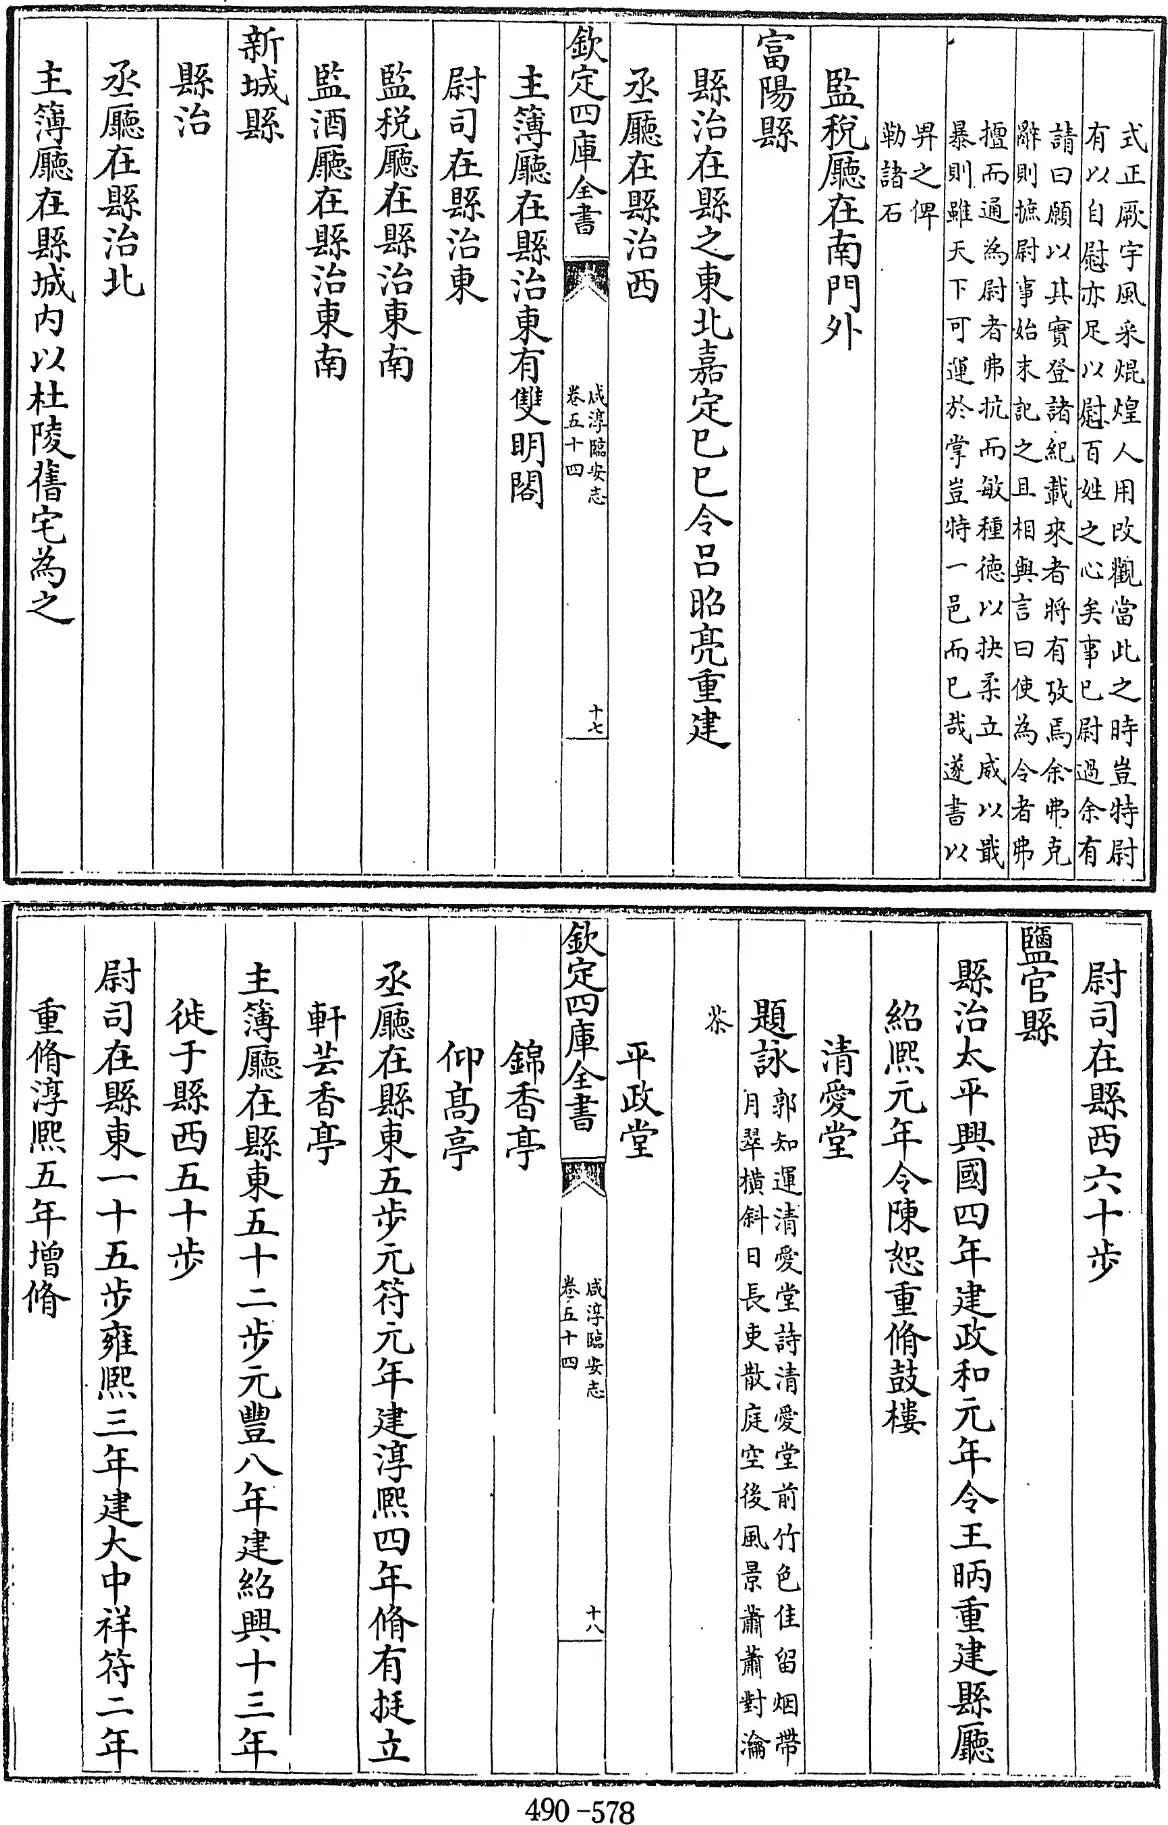 式正厥宇風采焜煌人用改觀當此之時豈特尉
有以自慰亦足以慰百姓之心矣事已尉過余有
請曰願以其實登諸紀載來者將有攷焉余弗克
辭則摭尉事始末記之且相與言曰使為令者弗
擅而通為尉者弗抗而敏種德以抉柔立威以戢
暴則雖天下可運於掌豈特一邑而已哉遂書以
畀之俾
勒諸石
監稅廳在南門外
富陽縣
縣治在縣之東北嘉定己巳令呂昭亮重建
丞廳在縣治西
欽定四庫全書
咸淳臨安志
卷五十四
十七
主簿廳在縣治東有雙明閣
尉司在縣治東
監稅廳在縣治東南
監酒廳在縣治東南
新城縣
縣治
丞廳在縣治北
主簿廳在縣城內以杜陵舊宅為之
尉司在縣西六十步
鹽官縣
縣治太平興國四年建政和元年令王昞重建縣廳
紹熙元年令陳恕重脩鼓樓
清愛堂
題詠
郭知運清愛堂詩清愛堂前竹色佳留烟帶
月翠橫斜日長吏散庭空後風景蕭蕭對瀹
茶
平政堂
欽定四庫全書
咸淳臨安志
卷五十四
十八
錦香亭
仰高亭
丞廳在縣東五步元符元年建淳熙四年脩有挺立
軒芸香亭
主簿廳在縣東五十二步元豐八年建紹興十三年
徙于縣西五十步
尉司在縣東一十五步雍熙三年建大中祥符二年
重脩淳熙五年增脩
490-578